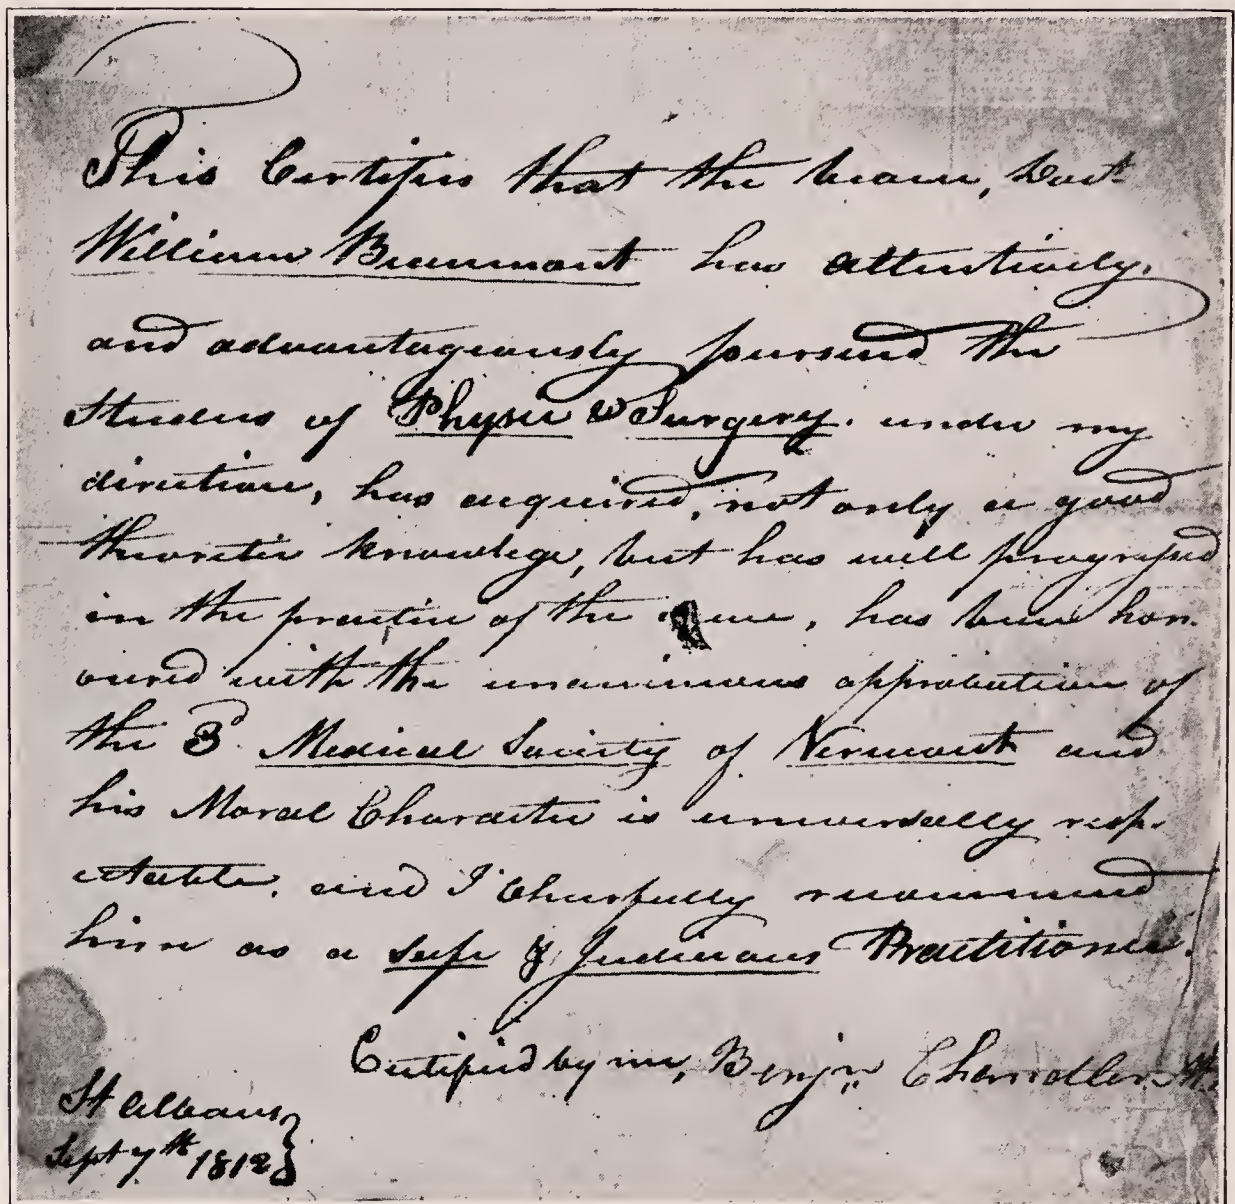 This Certifies that the bearer, Doct.
William Beaumont has attentively,
and advantageously pursued the
Studies of Physic & Surgery. under my
direction, has acquired, not only a good
theoretic knowlege, but has well progressed
in the practice of the , has been hon-
oured with the unanimous approbation of
the 3d Medical Society of Vermont and
his Moral Character is universally resp-
ectable. and I Chearfully recommend
him as a safe & Judicious Practitioner.
Certified by me, Benjn. Chandler
St Albans
Sept 7th 1812